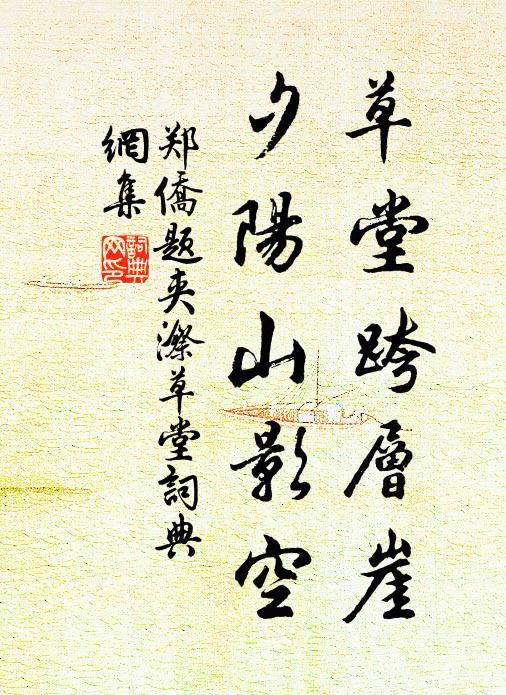 草堂跨層崖
夕陽山影空
郑僑题夹漈草堂詞典
網集
詞典
网印